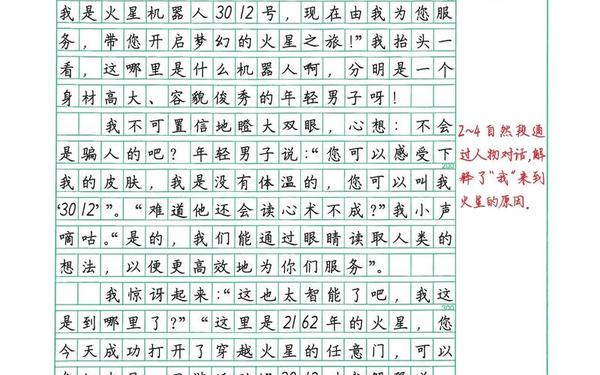 我是火星机器人3012号，现在由我为您服
务，带您开启梦幻的火星之旅！”我抬头一
看，这哪里是什么机器人啊，分明是一个
身材高大、容貌俊秀的年轻男子呀！
我不可置信地瞪大双眼，心想：不会
是骗人的吧？年轻男子说：“您可以感受下
200
我的皮肤，我是没有体温的，您可以叫我
‘3012’”。“难道他还会读心术不成？”我小声
嘀咕。“是的，我们能通过眼睛读取人类的
想法，以便更高效地为你们服务”。
我惊讶起来：“这也太智能了吧，我这
300
是到哪里了？”“这里是2162年的火星，您
今天成功打开了穿越火星的任意门，可以
2~4自然段通
过人物对话,解
释了“我”来到
火星的原因。